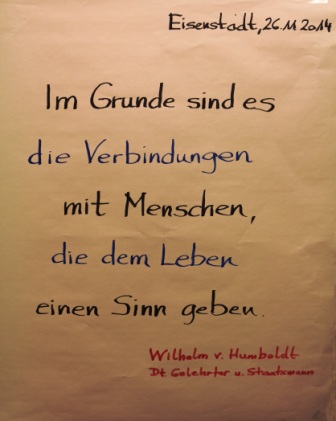 Eisenstadt, 26.11.2014
Im Grunde sind es
die Verbindungen
mit Menschen,
die dem Leben
einen Sinn geben.
Wilhelm v. Humboldt
Dt. Gelehrter u. Staatsmann